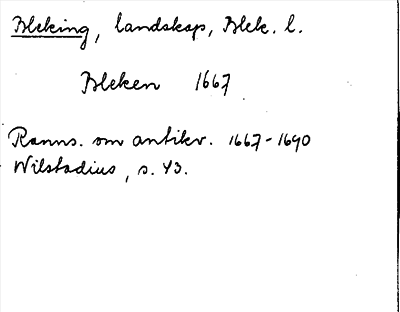 Bleking, landskap, Blek. l.
Bleken 1667
Ranns. om antikv. 1667-1690
Wilstadius, s. 43.